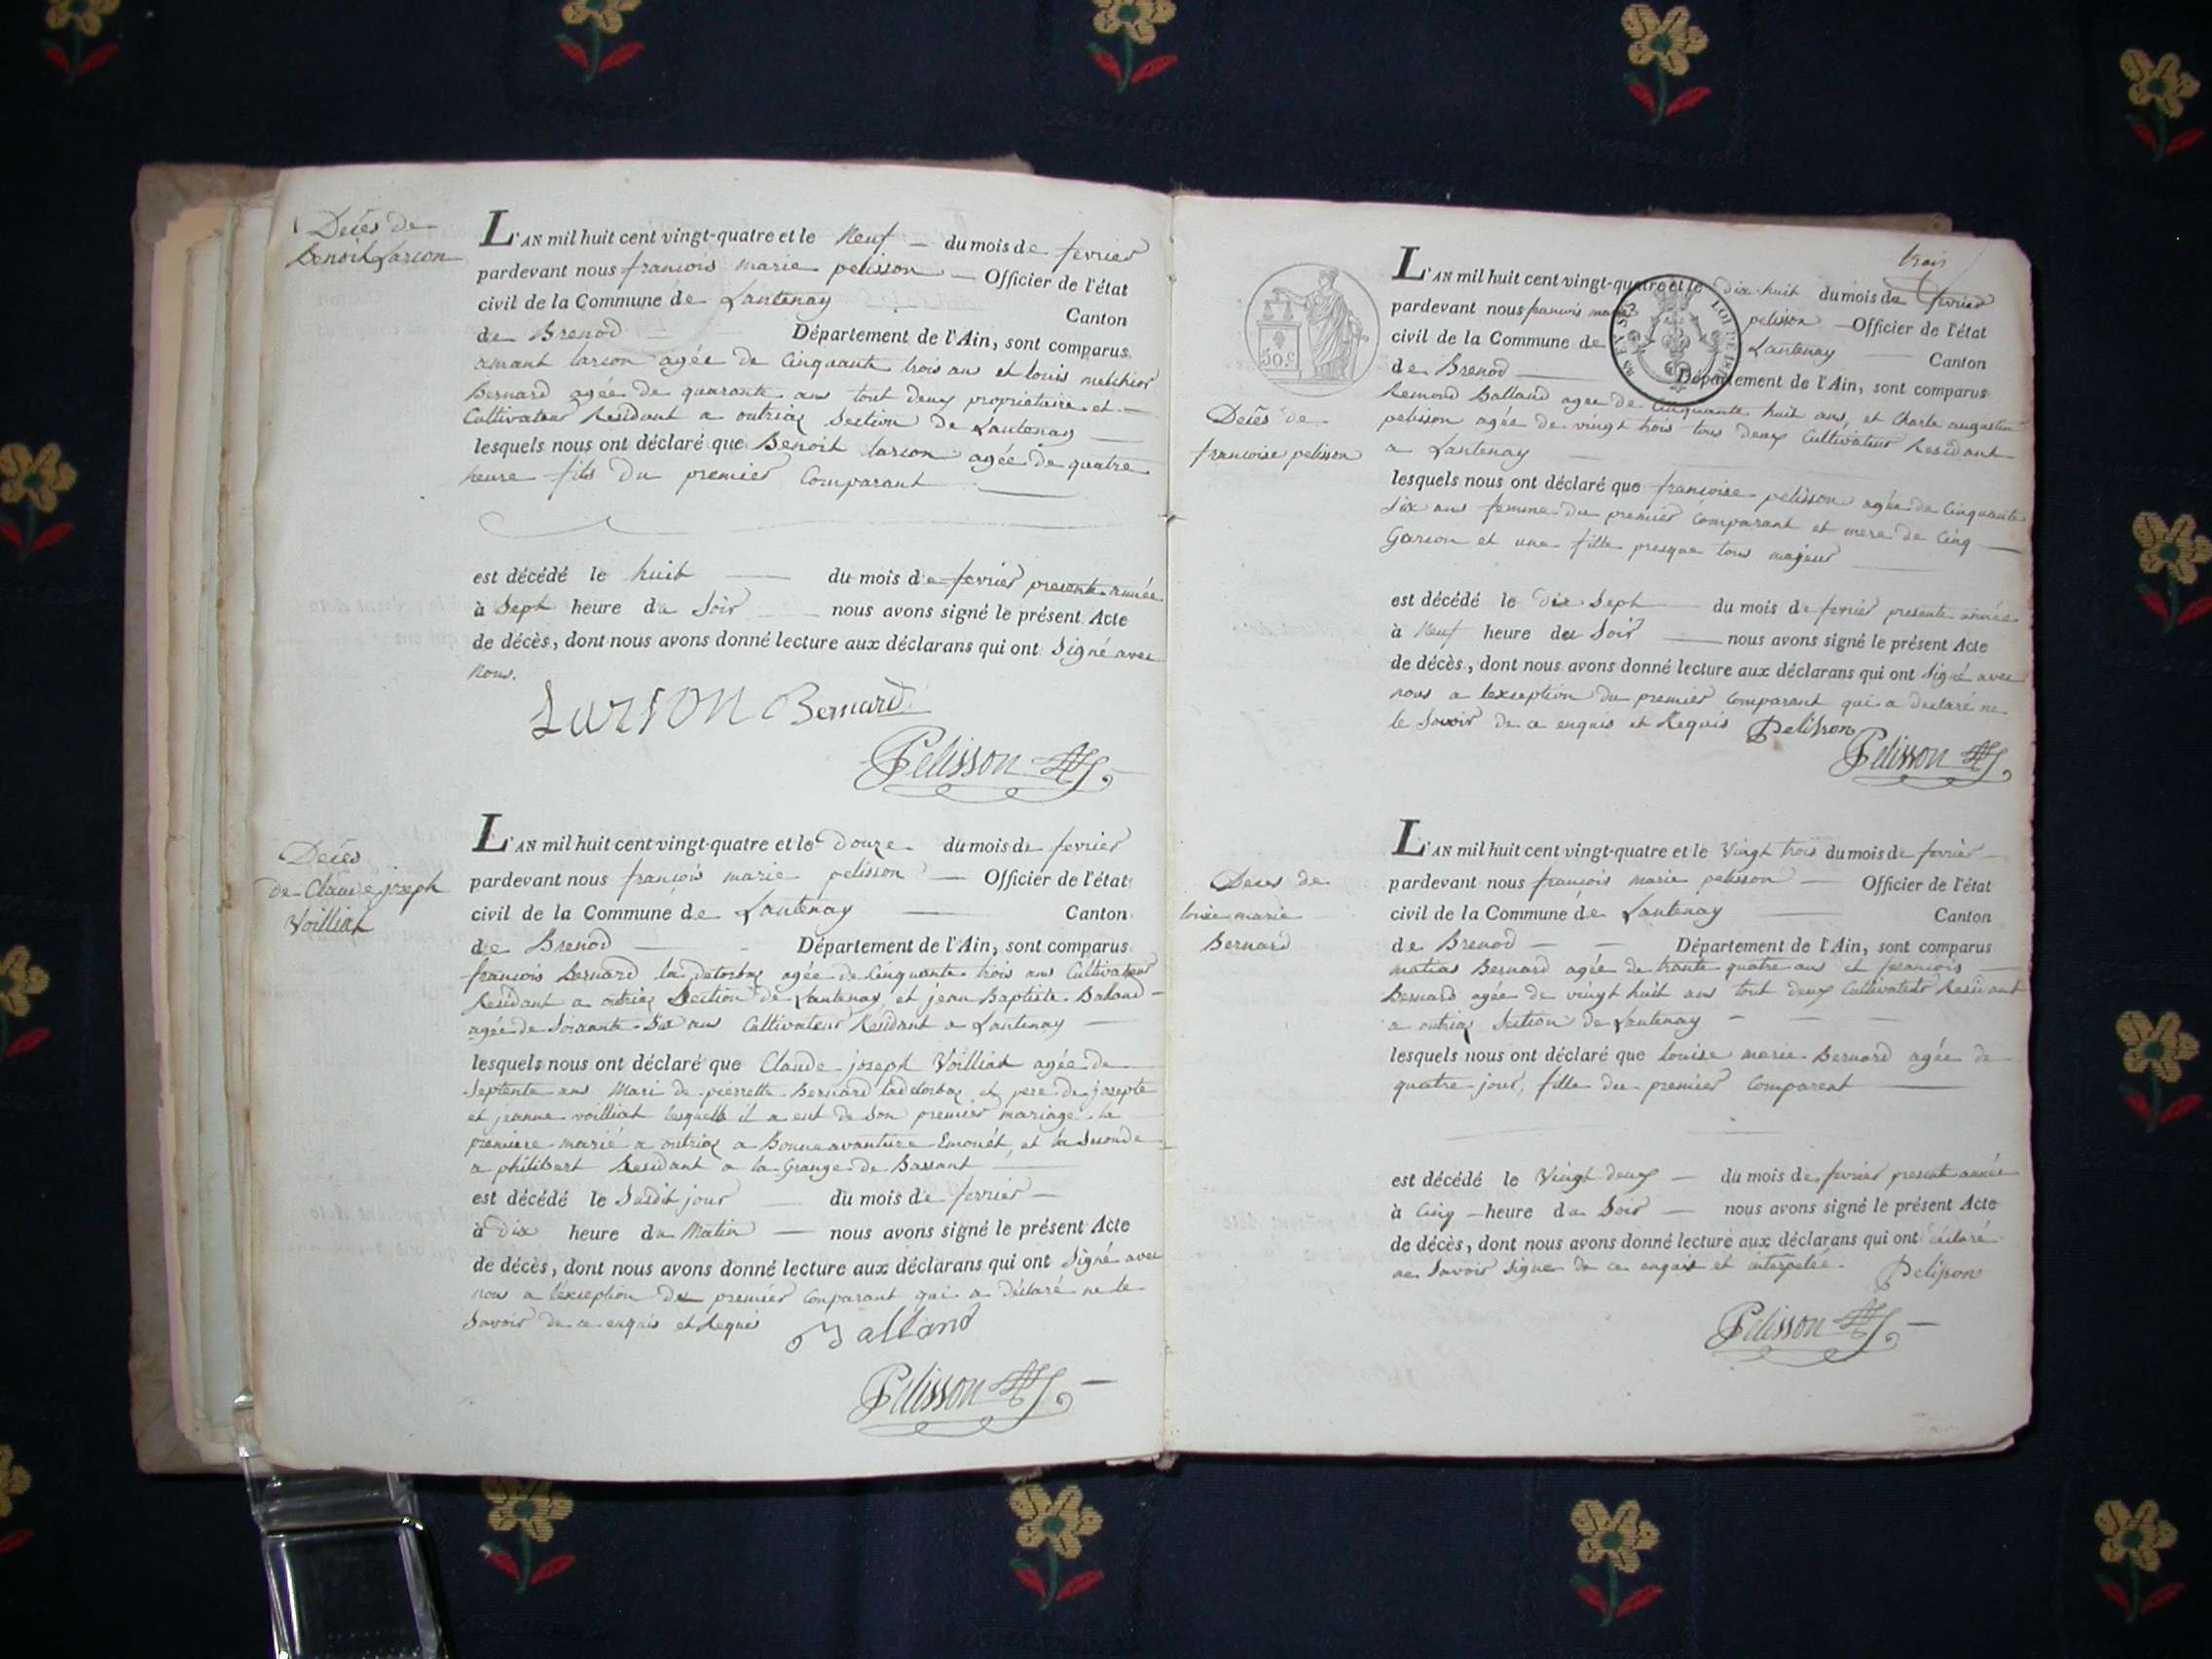 Decés de
Benoit Larçon
L'AN mil huit cent vingt-quatre et le Neuf du mois de fevrier
pardevant nous françois marie pelisson Officier de l'état
civil de la Commune de Lantenay Canton
de Brenod Département de l'Ain, sont comparus
amant larçon agée de Cinquante trois ans et louis melchior
Bernard agée de quarante ans tout deux propriétaire et
Cultivateur Residant a outriaz Section de Lantenay
lesquels nous ont déclaré que Benoit larçon agée de quatre
heure fils du premier Comparant
est décédé le huit du mois de fevrier presente année
à Sept heure du Soir nous avons signé le présent Acte
de décès, dont nous avons donné lecture aux déclarans qui ont Signé avec
nous.
Larson Bernard
Pelisson
Decés
de Claude joseph
Voilliat
L'AN mil huit cent vingt-quatre et le Douze du mois de fevrier
pardevant nous françois marie pelisson Officier de l'état
civil de la Commune de Lantenay Canton
de Brenod Département de l'Ain, sont comparus
françois Bernard la detorbaz agée de Cinquante trois ans Cultivateur
Residant a outriaz Section de Lantenay, et jean Baptiste Balland
agée de Soixante Six ans Cultivateur Residant a Lantenay
lesquels nous ont déclaré que Claude joseph Voilliat agée de
Septente ans Mari de pierrette Bernard ladetorbaz et pere de josepte
et jeanne voilliat lesquelle il a eut de Son premier mariage la
premiere marié a outriaz a Bonneavanture Emonét, et la Seconde
a philibert Residant a la Grange de Bassant
est décédé le Susdit jour du mois de fevrier
à dix heure du Matin nous avons signé le présent Acte
de décès, dont nous avons donné lecture aux déclarans qui ont Signé avec
nous a l'exception du premier Comparant qui a déclaré ne le
Savoir de ce enquis et Requis
Balland
Pelisson
trois
50.c
LOI DE 1816
Decés de
francoise pelisson
L'AN mil huit cent vingt-quatre et le dix huit du mois de fevrier
pardevant nous francois marie pelisson Officier de l'état
civil de la Commune de Lantenay Canton
de Brenod Département de l'Ain, sont comparus
Remond Balland agee de Cinquante huit ans, et Charle augustin
pelisson agée de vingt trois tous deux Cultivateur Residant
a Lantenay
lesquels nous ont déclaré que françoise pelisson agée de Cinquante
Six ans femme du premier Comparant et mere de Cinq
Garson et une fille presque tous majeur
est décédé le dix Sept du mois de fevrier presente année
à Neuf heure du Soir nous avons signé le présent Acte
de décès, dont nous avons donné lecture aux déclarans qui ont Signé avec
nous a lexception du premier Comparant qui a declaré ne
le Savoir de ce enquis et Requis Pelisson
Pelisson
Deces de
louise marie
Bernard
L'AN mil huit cent vingt-quatre et le Vingt trois du mois de fevrier
pardevant nous françois marie pelisson Officier de l'état
civil de la Commune de Lantenay Canton
de Brenod Département de l'Ain, sont comparus
matias Bernard agée de trante quatre ans et francois
Bernard agée de vingt huit ans tout deux Cultivateur Residant
a outriaz Section de Lantenay
lesquels nous ont déclaré que louise marie Bernard agée de
quatre jour, fille du premier Comparent
est décédé le Vingt deux du mois de fevrier presente année
à Cinq heure du Soir nous avons signé le présent Acte
de décès, dont nous avons donné lecture aux déclarans qui ont déclaré
ne Savoir Signe de ce enquis et interpelée. Pelisson
Pelisson